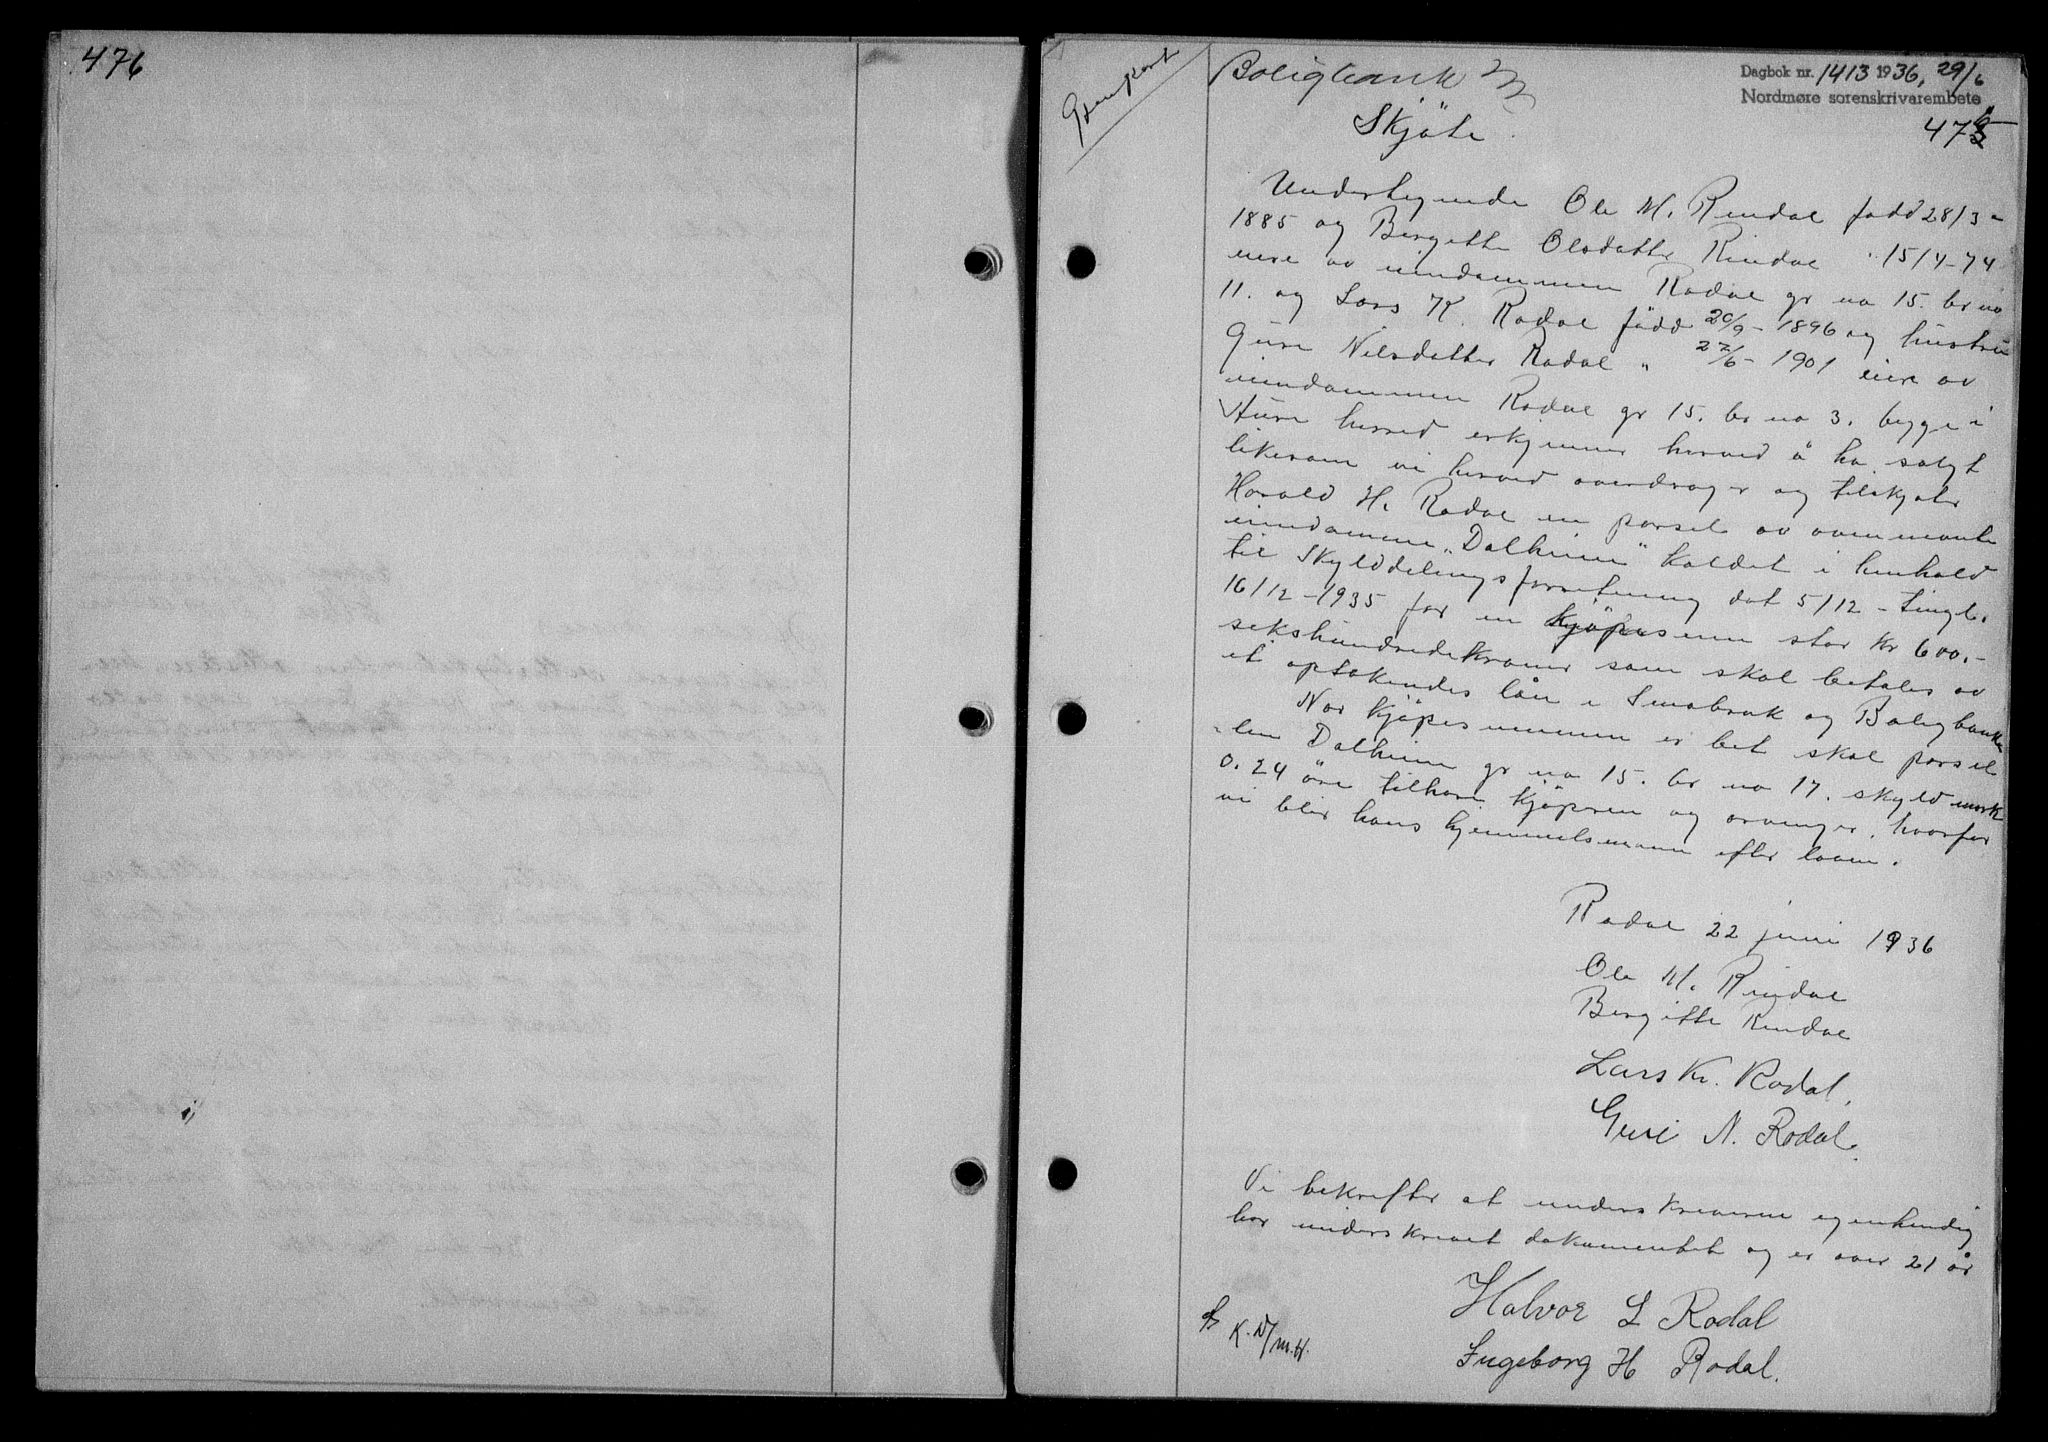 476
Gjenpart
Boligbank
Dagbok nr. 1413 1936, 29/6
Nordmøre sorenskrivarembete
475
Skjöte
Undertegnede Ole M. Rindal född 28/3-
1885 og Bergitte Olsdatter Rindal " 15/4-74
eiere av eiendommen Rodal gr no 15. br no
11. og Lars K. Rodal född 20/9-1896 og hustru
Guri Nilsdatter Rodal " 27/6-1901 eiere av
eiendommen Rodal gr 15. br no 3. begge i
Aure herred erkjenner herved å ha solgt
likesom vi herved overdrager og tilskjöter
Harald H. Rodal en parsel av ovennevnte
eiendomme "Dalheim" kaldet i henhold
til Skylddelingsforretning dat 5/12 - tingl.
16/12-1935 for en kjöpesum stor kr 600.-
sekshundredekroner som skal betales av
et optakendes lån i Småbruk og Boligbanken
Når kjöpesummen er bet skal parsel-
len Dalheim gr no 15. br no 17. skyld mark
0.24 öre tilhøre kjöperen og arvinger. hvorfor
vi blir hans hjemmelsmenn efter loven.
Rodal 22 juni 1936
Ole M. Rindal
Bergitte Rindal
Lars Kr. Rodal.
Guri N. Rodal.
Vi bekrefter at underskriverne egenhendig
har underskrevet dokumentet og er over 21 år
Halvor L Rodal
Ingeborg H Rodal.
K. N/m.H.